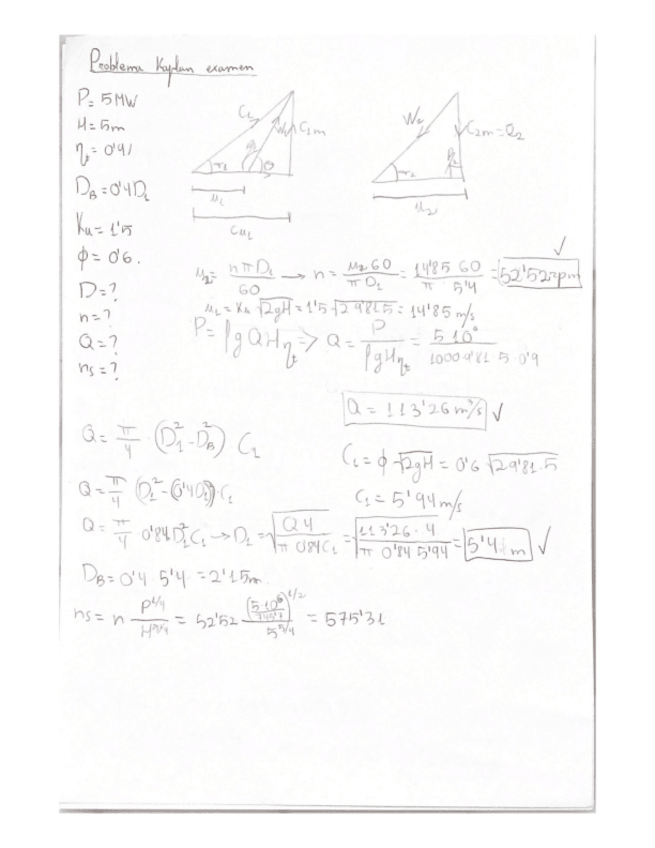 Problema Kaplan examen
P= 5MW
H= 5m
ηt = 0'91
DB = 0'4D1
Ku = 1'5
φ = 0'6.
D=?
n=?
Q=?
ns=?
C1 W1 C1m
u1
Cu1
W2 C2m=C2
u2
u2 = nπD1/60 → n = u2 60/πD1 = 14'85 60/π 5'4 = 52'52rpm ✓
u1 = Ku √2gH = 1'5 √2 9'81 5 = 14'85 m/s
P = ρgQHηt → Q = P/ρgHηt = 5 10⁶/1000 9'81 5 0'9
Q = 113'26 m³/s ✓
Q = π/4 · (D1² - DB²) C1
C1 = φ √2gH = 0'6 √2 9'81 5
Q = π/4 (D1² - (0'4D1)²) · C1
C1 = 5'94 m/s
Q = π/4 0'84D1² C1 → D1 = √(Q 4/π 0'84 C1) = √(113'26 · 4/π 0'84 5'94) = 5'4 m ✓
DB = 0'4 5'4 = 2'15m.
ns = n = 52'52 (5·10⁶/745'7)^1/2 / 5^5/4 = 575'31